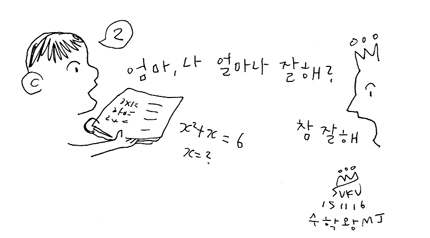 2
엄마, 나 얼마나 잘해?
x²+x=6
x=?
참 잘해
SVKV
151116
수학왕MJ